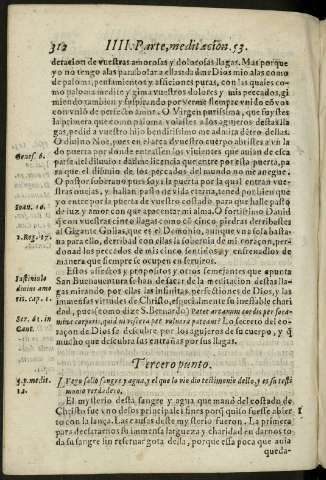 312 IIII. Parte, meditacion. 53.
deracion de vuestras amorosas y dolorosas llagas. Mas porque
yo no tengo alas para bolar a ellas dadme Dios mio alas como
de paloma, pensamientos y aficiones puras, con las quales co-
mo paloma medite y gima vuestros dolores y mis peccados, gi
miendo tambien y suspirando por verme siempre vnido cõ vos
con vnion de perfecto amor. O Virgen purissima, que fuystes
la primera que como paloma volastes a los agujeros destas lla
gas, pedid a vuestro hijo benditissimo me admita dẽtro dellas.
O diuino Noe, pues en el arca de vuestro cuerpo abristes a vn la
do puerta por donde entrassen los viuientes que auian de esca
parse del diluuio: dadme licencia que entre por esta puerta, pa
ra que el diluuio de los peccados del mundo no me anegue.
O pastor soberano puerta por la qual entran vues
tras ouejas, y hallan pasto de vida eterna, tened por bien que
yo entre por la puerta de vuestro costado, para que halle pasto
de luz y amor con que apacentar mi alma. O fortissimo Dauid
que con vuestras cinco llagas como cõ cinco piedras derribastes
al Gigante Golias, que es el Demonio, aunque vna sola basta-
ua para ello, derribad con ellas la soberuia de mi coraçon, per-
donad los peccados de mis cinco sentidos y enfrenadlos de
manera que siempre se ocupen en seruiros.
Genes. 6.
Ioan. 10.
1. Reg. 17.
Estos affectos y propositos y otros semejantes que apunta
San Buenauentura se han de sacar de la meditacion destas lla-
gas mirando por ellas las infinitas perfecciones de Dios, y las
immensas virtudes de Christo, especialmente su ineffable chari
dad, pues (como dize S. Bernardo) Patet arcanum cordis per fora-
mina corporis, quid ni viscera per vulnera pateant? Lo secreto del co-
raçon de Dios se descubre por los agujeros de su cuerpo, y
mucho que descubra sus entrañas por sus llagas.
Ser. 61. in
Cant.
Tercero punto.
Luego salio sangre y agua, y el que lo vio dio testimonio dello, y es su testi
monio verdadero.
El mysterio desta sangre y agua que manó del costado de
Christo fue vno de los principales fines porq̃ quiso fuesse abier
to con la lança. Las causas deste mysterio fueron. La primera 1
para declararnos su immensa largueza y charidad en darnos to
da su sangre sin reseruar gota della, porque essa poca que auia
queda-